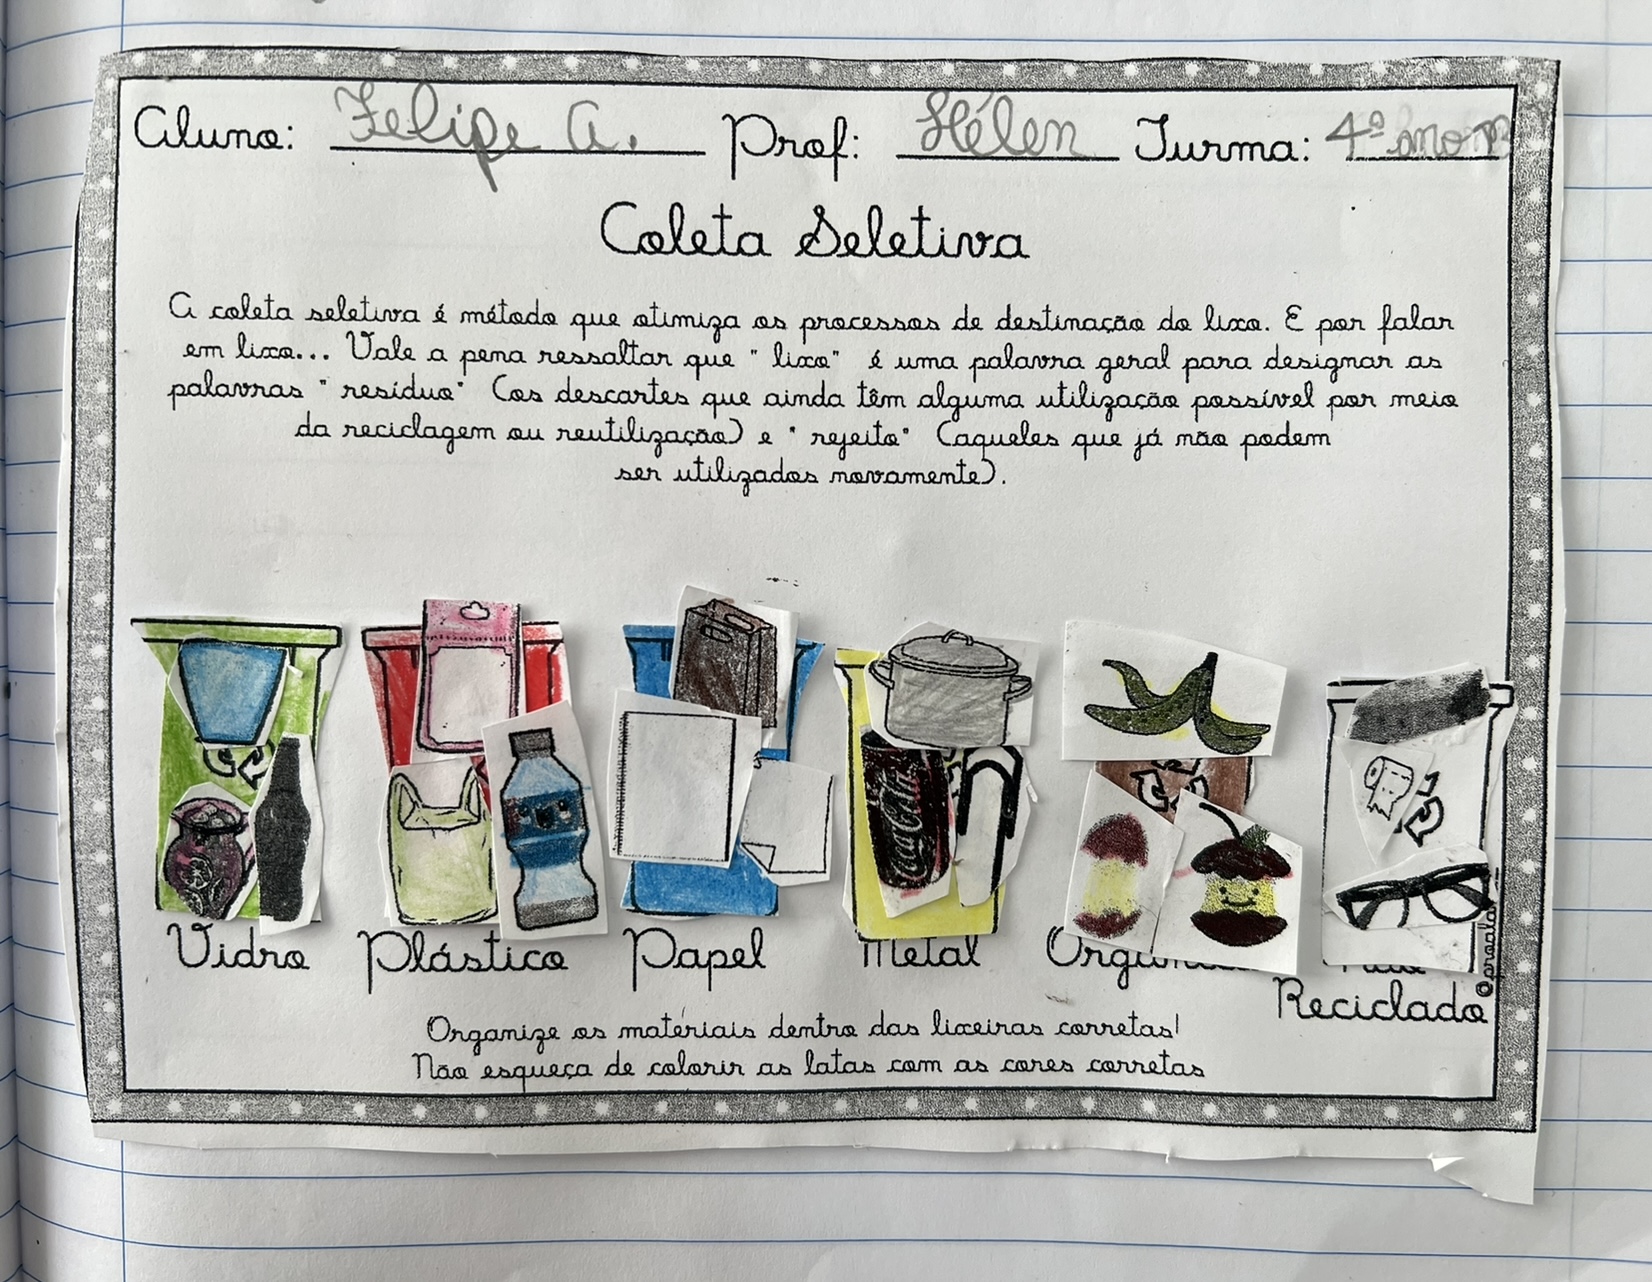 Aluno: Felipe A. Prof: Hélen Turma: 4º ano B
Coleta Seletiva
A coleta seletiva é método que otimiza os processos de destinação do lixo. E por falar
em lixo... Vale a pena ressaltar que "lixo" é uma palavra geral para designar as
palavras "resíduo" (os descartes que ainda têm alguma utilização possível por meio
da reciclagem ou reutilização) e "rejeito" (aqueles que já não podem
ser utilizados novamente).
Coca-Cola
Vidro Plástico Papel Metal
Reciclado
Organize os materiais dentro das lixeiras corretas!
Não esqueça de colorir as latas com as cores corretas